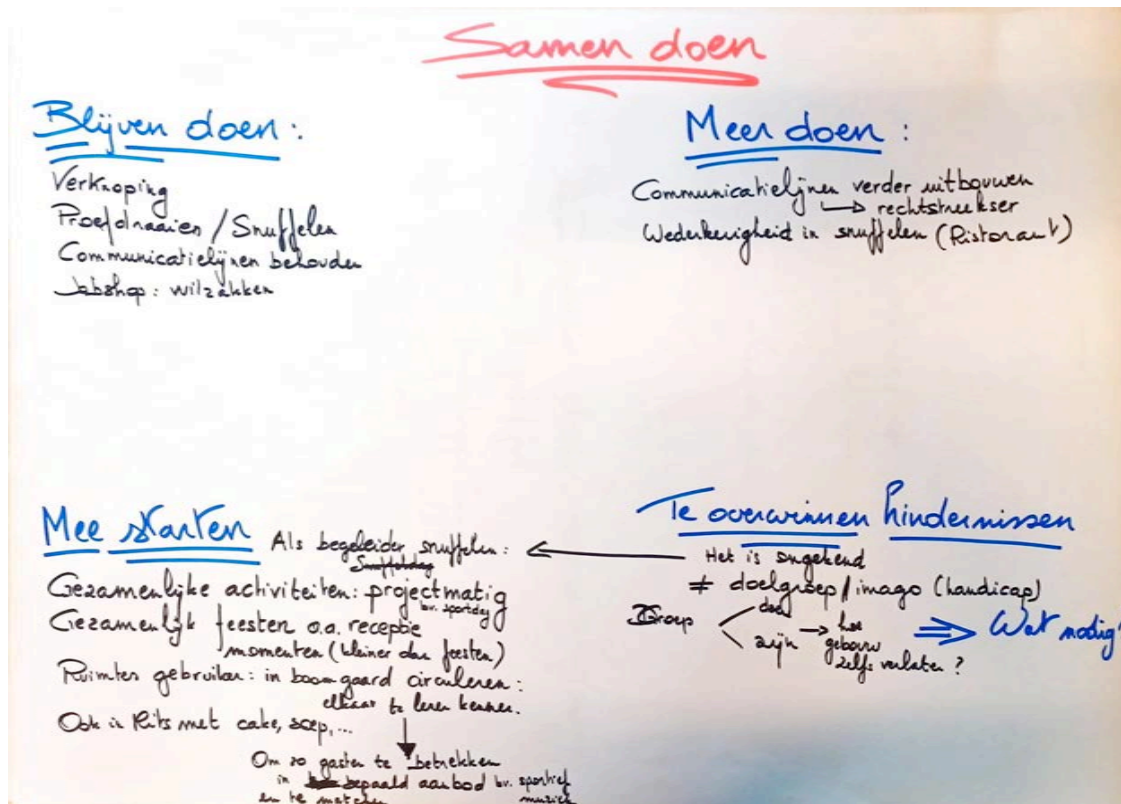 Samen doen
Blijven doen:
Verknoping
Proefdraaien / Snuffelen
Communicatielijnen behouden
Jobshop: wilzakken
Meer doen:
Communicatielijnen verder uitbouwen
→ rechtstreekser
Wederkerigheid in snuffelen (Ristorant)
Mee starten
Als begeleider snuffelen:
Gezamenlijke activiteiten: projectmatig
bv. sportdag
Gezamenlijk feesten o.a. receptie
momenten (kleiner dan feesten)
Ruimtes gebruiken: in boomgaard circuleren:
elkaar te leren kennen.
Ook in Rits met cake, soep,...
Om zo gasten te betrekken
in bepaald aanbod bv. sportief
en te matchen muziek
Te overwinnen hindernissen
Het is ongekend
≠ doelgroep/imago (handicap)
Groep
doel
zijn → hoe
gebouw
zelfs verlaten?
⇒ Wat nodig?